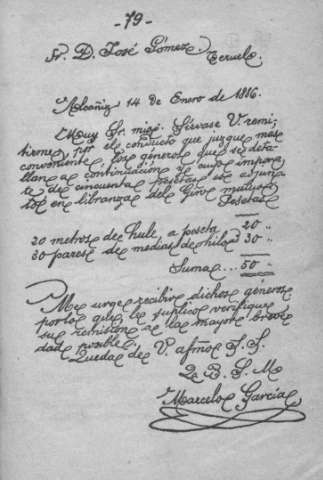 -79-
Sr. D. José Gómez
Teruel
Alcañiz 14 de Enero de 1886.
Muy Sr. mio: Sírvase V. remi-
tirme por el conducto que juzgue mas
conveniente, los géneros que se deta-
llan a continuacion y cuyo impor-
te de cincuenta pesetas se adjun-
tos en libranza del Giro mutuo
Pesetas
20 metros de hule a peseta 20 "
30 pares de medias de hilo a 30 "
Suma... 50 "
Me urge recibir dichos géneros
por lo que le suplico verifique
su remision a la mayor breve-
dad posible.
Queda de V. afmo S. S.
Q. B. S. M.
Marcelo García